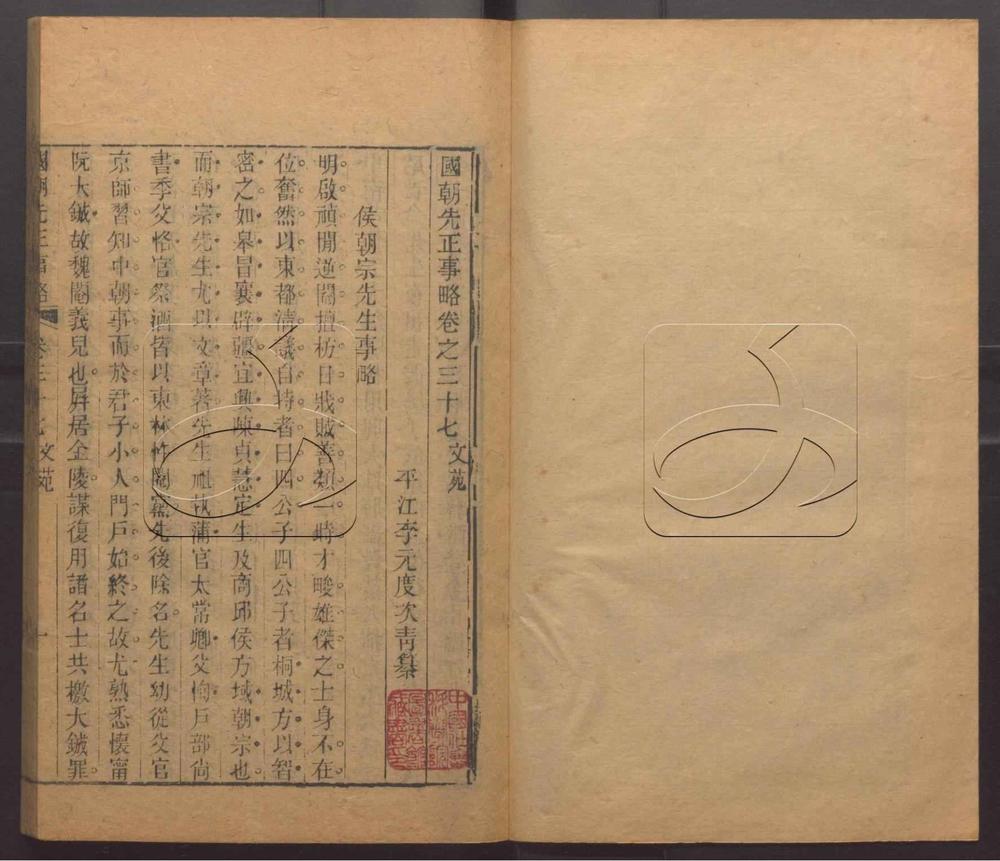 國朝先正事略卷之三十七 文苑
平江李元度次青纂
侯朝宗先生事略
明啟禎間逆閹擅枋日戕賊善類一時才畯雄傑之士身不在
位奮然以東都清議自持者曰四公子四公子者桐城方以智
密之如皋冒襄辟疆宜興陳貞慧定生及商邱侯方域朝宗也
而朝宗先生尤以文章著先生祖執蒲官太常卿父恂戶部尚
書季父恪官祭酒皆以東林忤閹黨先後除名先生幼從父官
京師習知中朝事而於君子小人門戶始終之故尤熟悉懷甯
阮大鋮故魏閹義兒也屏居金陵謀復用諸名士共檄大鋮罪
國朝先正事略 卷三十七 文苑 一